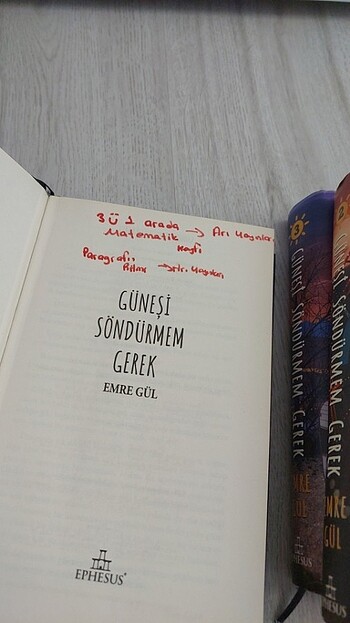 3 ü 1 arada
Matematik → Arı Yayınları
Paragrafın
→ Arı Yayınları
GÜNEŞİ
SÖNDÜRMEM
GEREK
EMRE GÜL
EPHESUS
3
GÜNEŞİ SÖNDÜRMEM GEREK
EMRE
GÜL
2
GÜNEŞİ SÖNDÜRMEM GEREK
EMRE
GÜL
EPHESUS